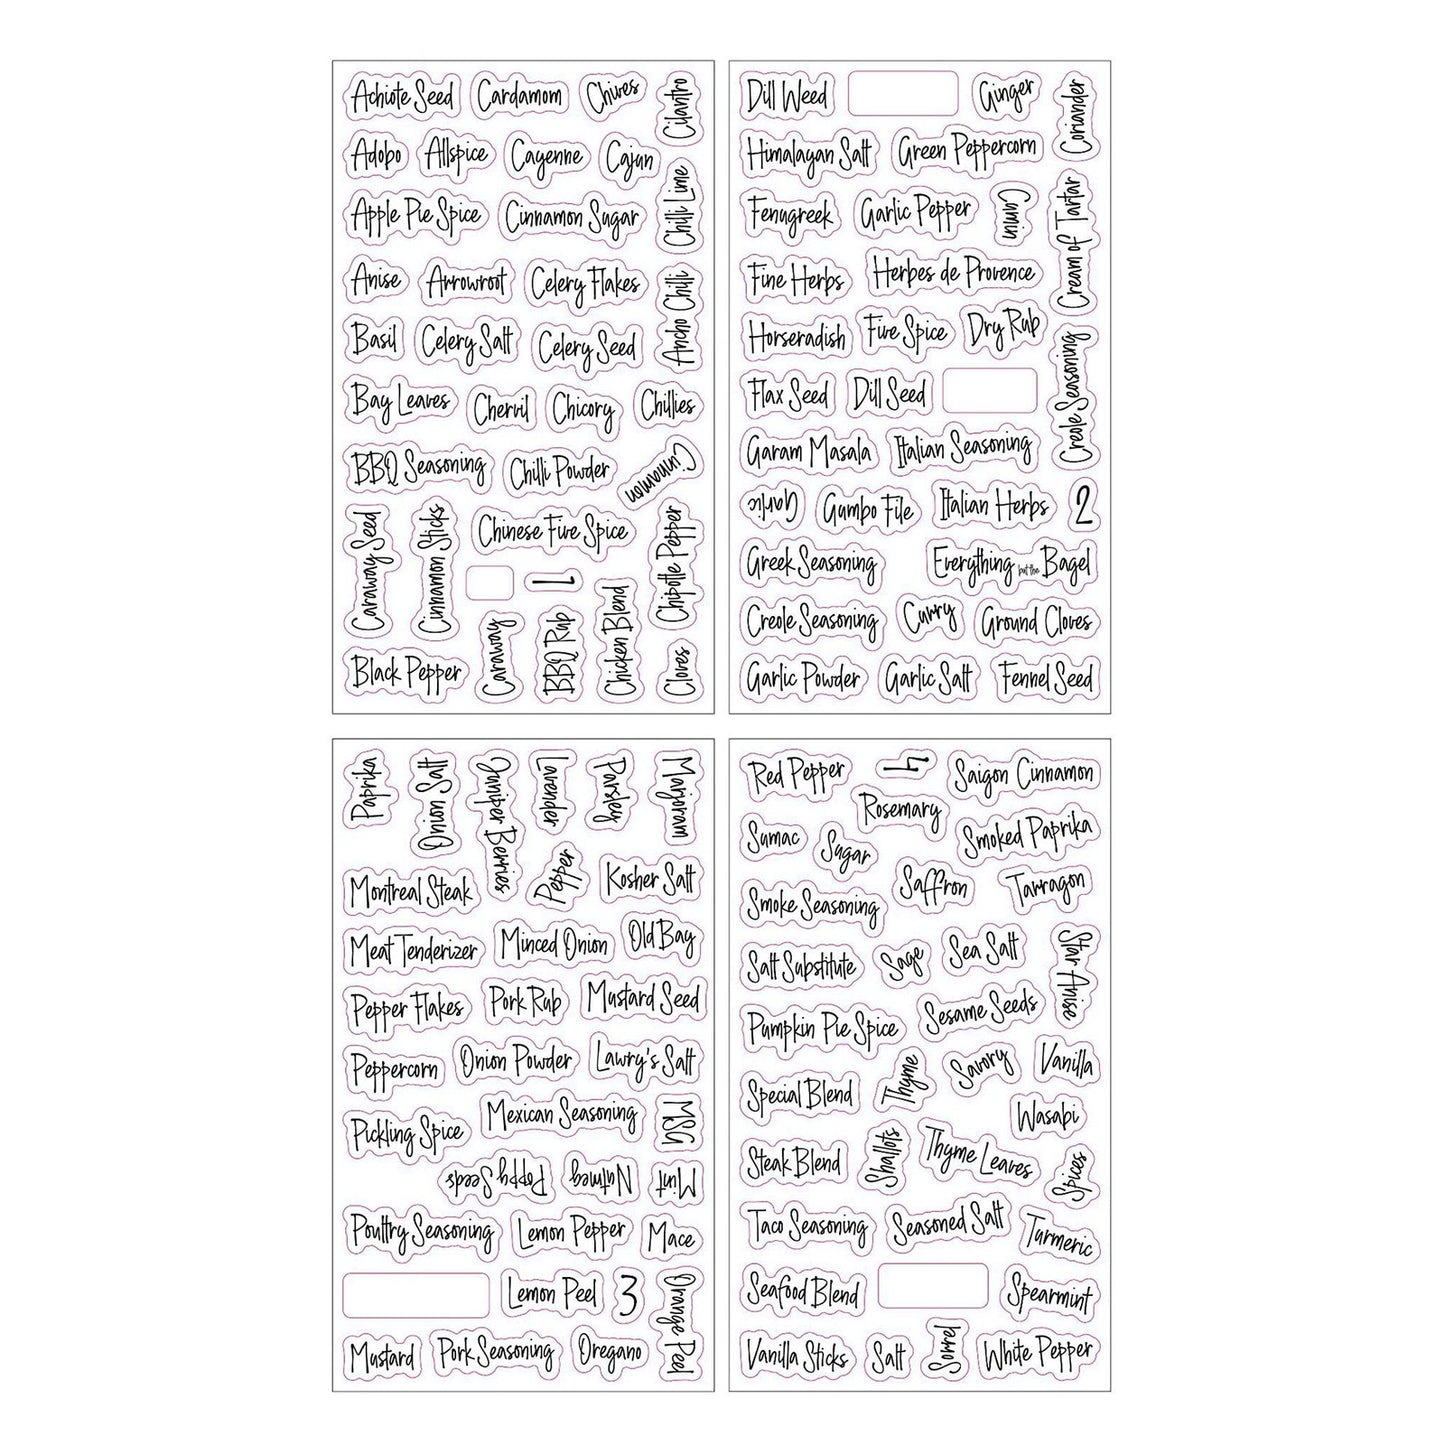 Achiote Seed
Cardamom
Chives
Cilantro
Adobo
Allspice
Cayenne
Cajun
Apple Pie Spice
Cinnamon Sugar
Chilli Lime
Anise
Arrowroot
Celery Flakes
Ancho Chilli
Basil
Celery Salt
Celery Seed
Bay Leaves
Chervil
Chicory
Chillies
BBQ Seasoning
Chilli Powder
Cinnamon
Caraway Seed
Cinnamon Sticks
Chinese Five Spice
Chipotle Pepper
1
Caraway
BBQ Rub
Chicken Blend
Cloves
Black Pepper
Dill Weed
Ginger
Coriander
Himalayan Salt
Green Peppercorn
Fenugreek
Garlic Pepper
Cumin
Cream of Tartar
Fine Herbs
Herbes de Provence
Horseradish
Five Spice
Dry Rub
Creole Seasoning
Flax Seed
Dill Seed
Garam Masala
Italian Seasoning
Garlic
Gumbo File
Italian Herbs
2
Greek Seasoning
Everything but the Bagel
Creole Seasoning
Curry
Ground Cloves
Garlic Powder
Garlic Salt
Fennel Seed
Paprika
Onion Salt
Juniper Berries
Lavender
Parsley
Marjoram
Montreal Steak
Pepper
Kosher Salt
Meat Tenderizer
Minced Onion
Old Bay
Pepper Flakes
Pork Rub
Mustard Seed
Peppercorn
Onion Powder
Lawry's Salt
Pickling Spice
Mexican Seasoning
MSG
Poppy Seeds
Nutmeg
Mint
Poultry Seasoning
Lemon Pepper
Mace
Lemon Peel
3
Orange Peel
Mustard
Pork Seasoning
Oregano
Red Pepper
4
Saigon Cinnamon
Rosemary
Sumac
Sugar
Smoked Paprika
Smoke Seasoning
Saffron
Tarragon
Salt Substitute
Sage
Sea Salt
Star Anise
Pumpkin Pie Spice
Sesame Seeds
Special Blend
Thyme
Savory
Vanilla
Wasabi
Steak Blend
Shallots
Thyme Leaves
Spices
Taco Seasoning
Seasoned Salt
Turmeric
Seafood Blend
Spearmint
Vanilla Sticks
Salt
Sorrel
White Pepper